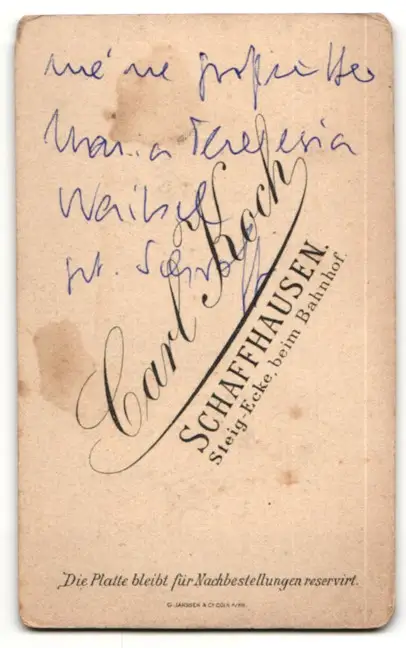 meine großmutter
Maria Teresia
gt. Schroff
Carl Koch
SCHAFFHAUSEN.
Steig-Ecke, beim Bahnhof.
Die Platte bleibt für Nachbestellungen reservirt.